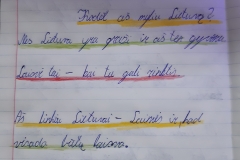 Kodėl aš myliu Lietuvą?
Nes Lietuva yra graži ir aš ten gyvenu
Laisvė tai – kai tu gali rinktis
Aš linkiu Lietuvai – Laisvės ir, kad
visada būtų laisva.